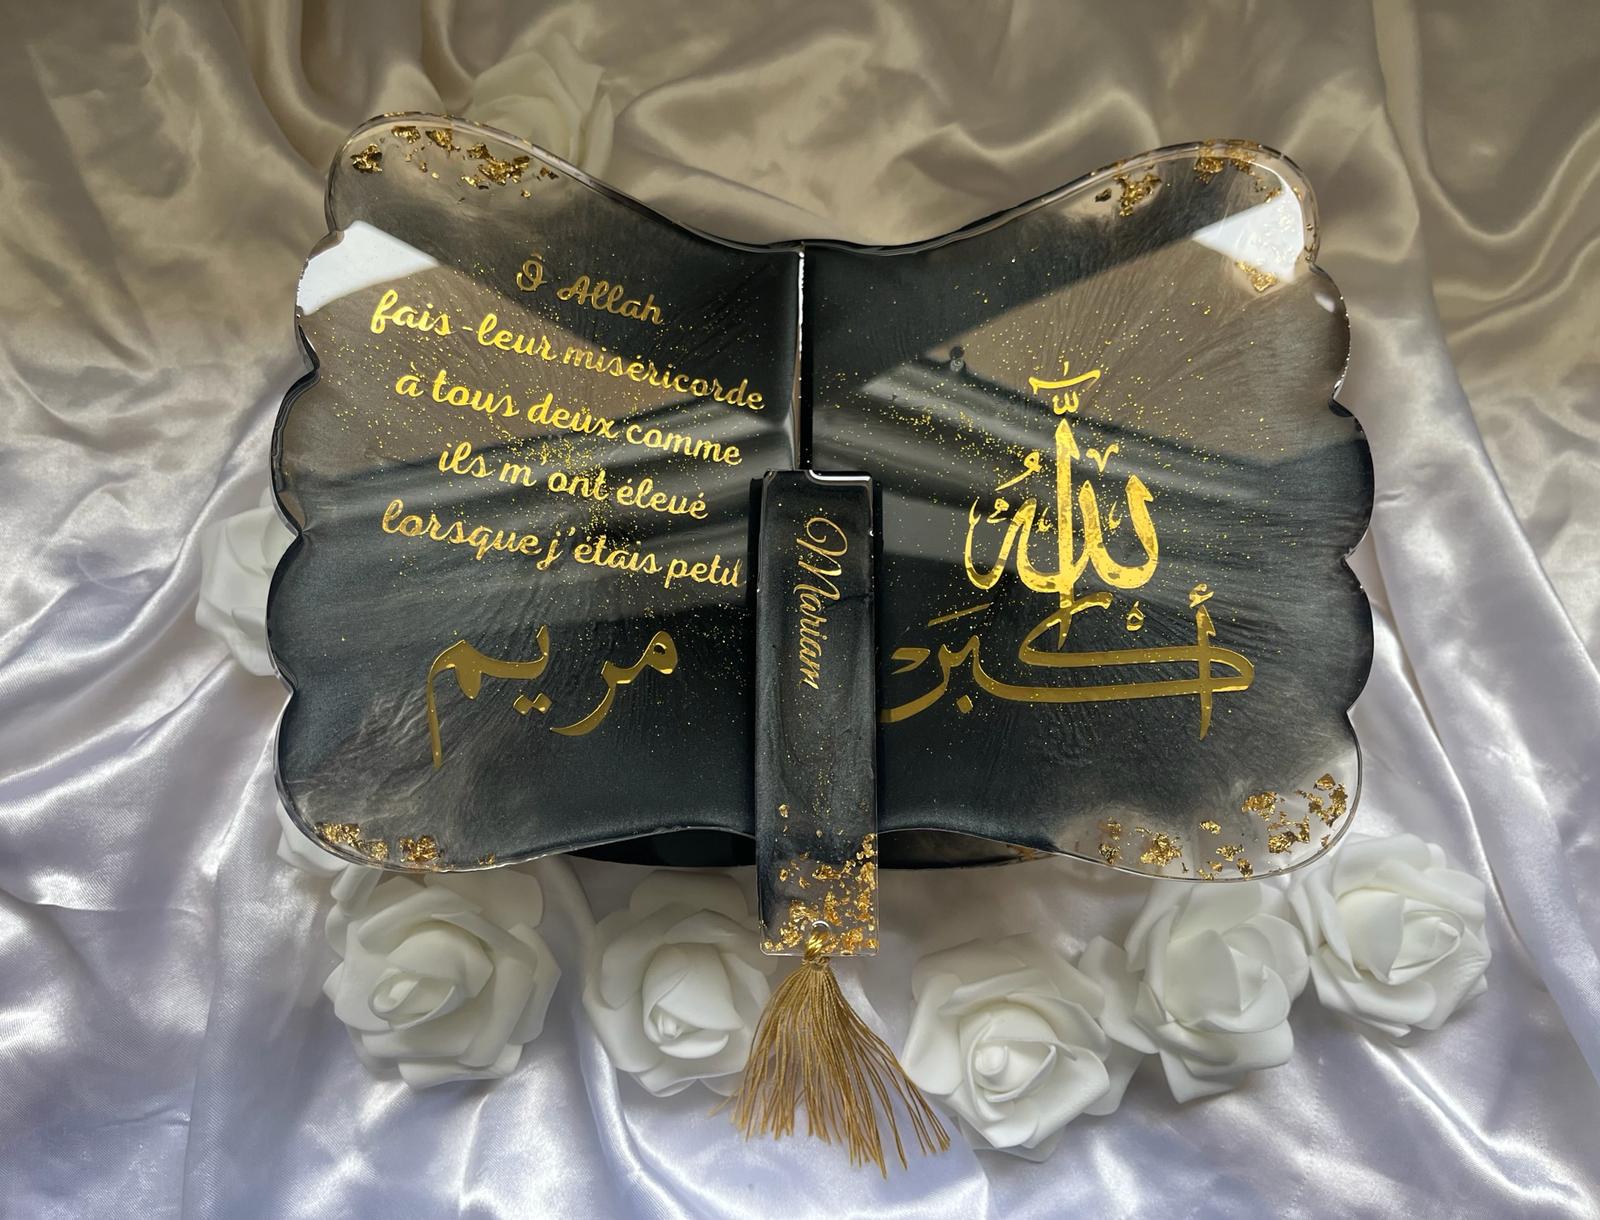 Ô Allah
fais-leur miséricorde
à tous deux comme
ils m'ont élevé
lorsque j'étais petit
مريم
Mariam
الله
أكبر